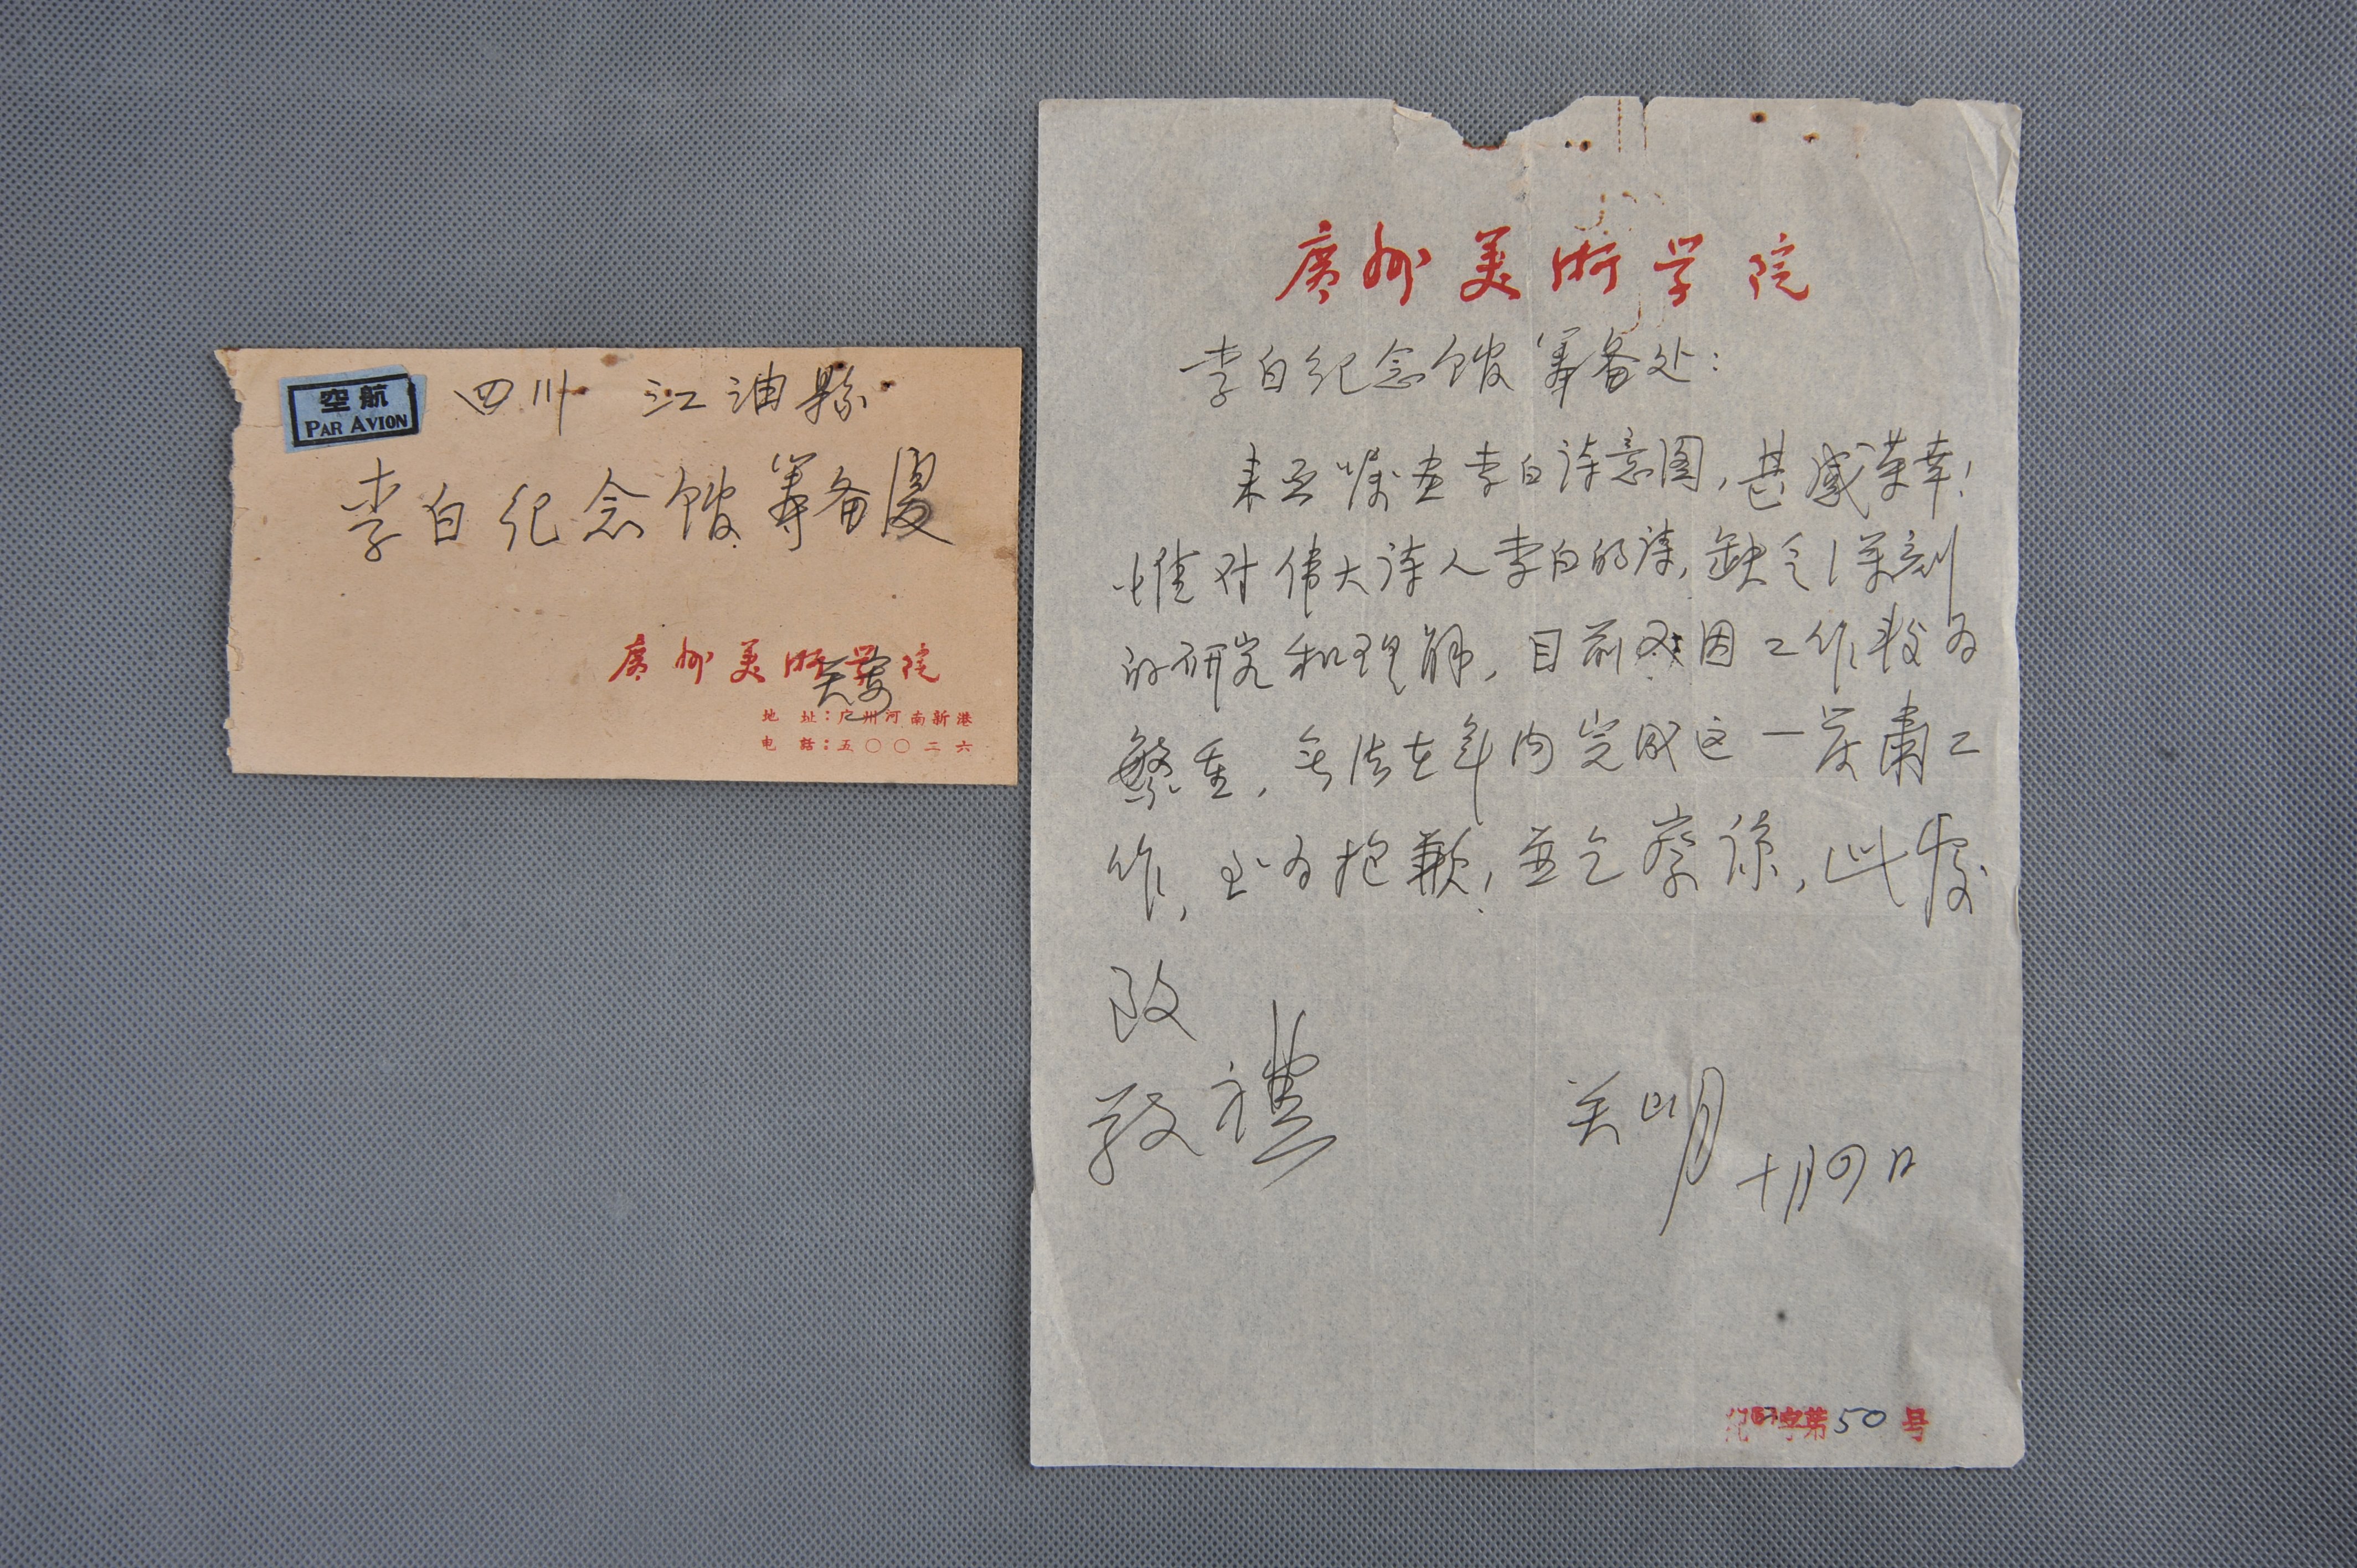 航空
PAR AVION
四川 江油縣
李白纪念馆筹备处
廣州美術学院
关寄
地 址：广州河南新港
电 話：五〇〇二六
廣州美術学院
李白纪念馆筹备处：
来函嘱画李白诗意图，甚感荣幸！
惟对伟大诗人李白的诗，缺乏深刻
的研究和理解，目前又因工作较为
繁重，无法在年内完成这一严肃工
作，至为抱歉，並乞察谅，此復
致
敬禮
关山月 十月四日
字第50号